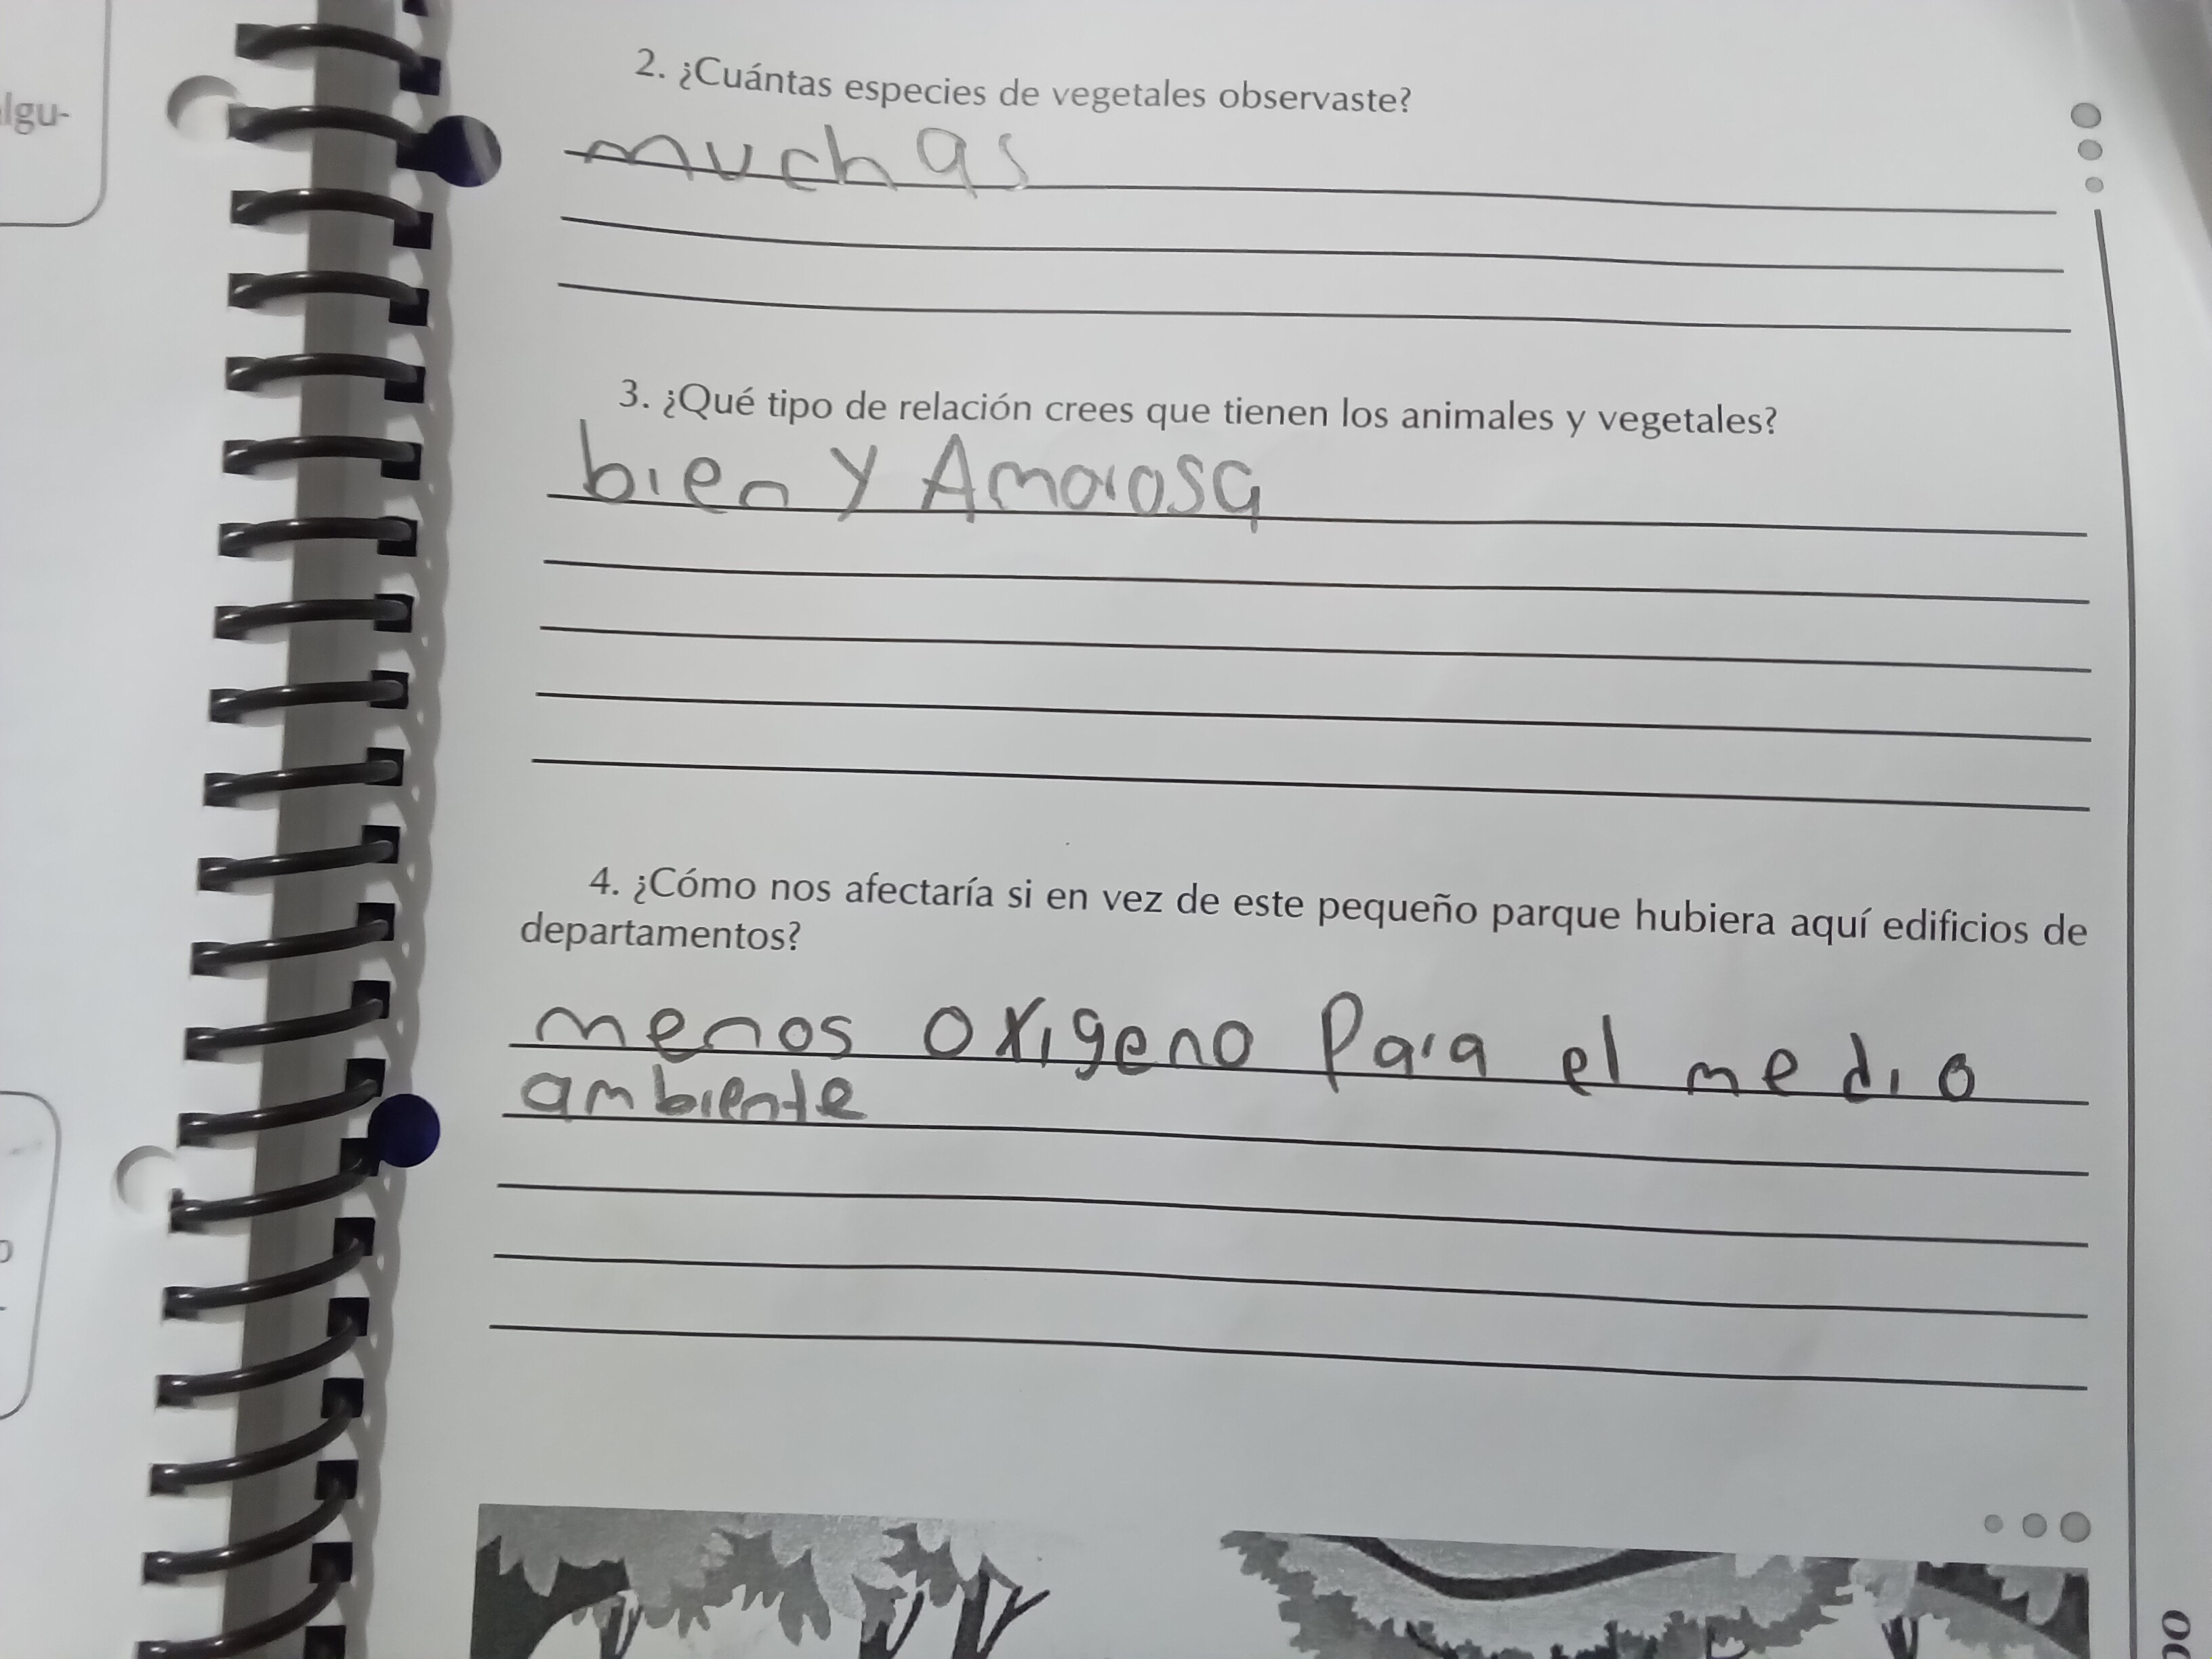 lgu-
2. ¿Cuántas especies de vegetales observaste?
muchas
3. ¿Qué tipo de relación crees que tienen los animales y vegetales?
bien y Amorosa
4. ¿Cómo nos afectaría si en vez de este pequeño parque hubiera aquí edificios de
departamentos?
menos oxigeno Para el medio
ambiente